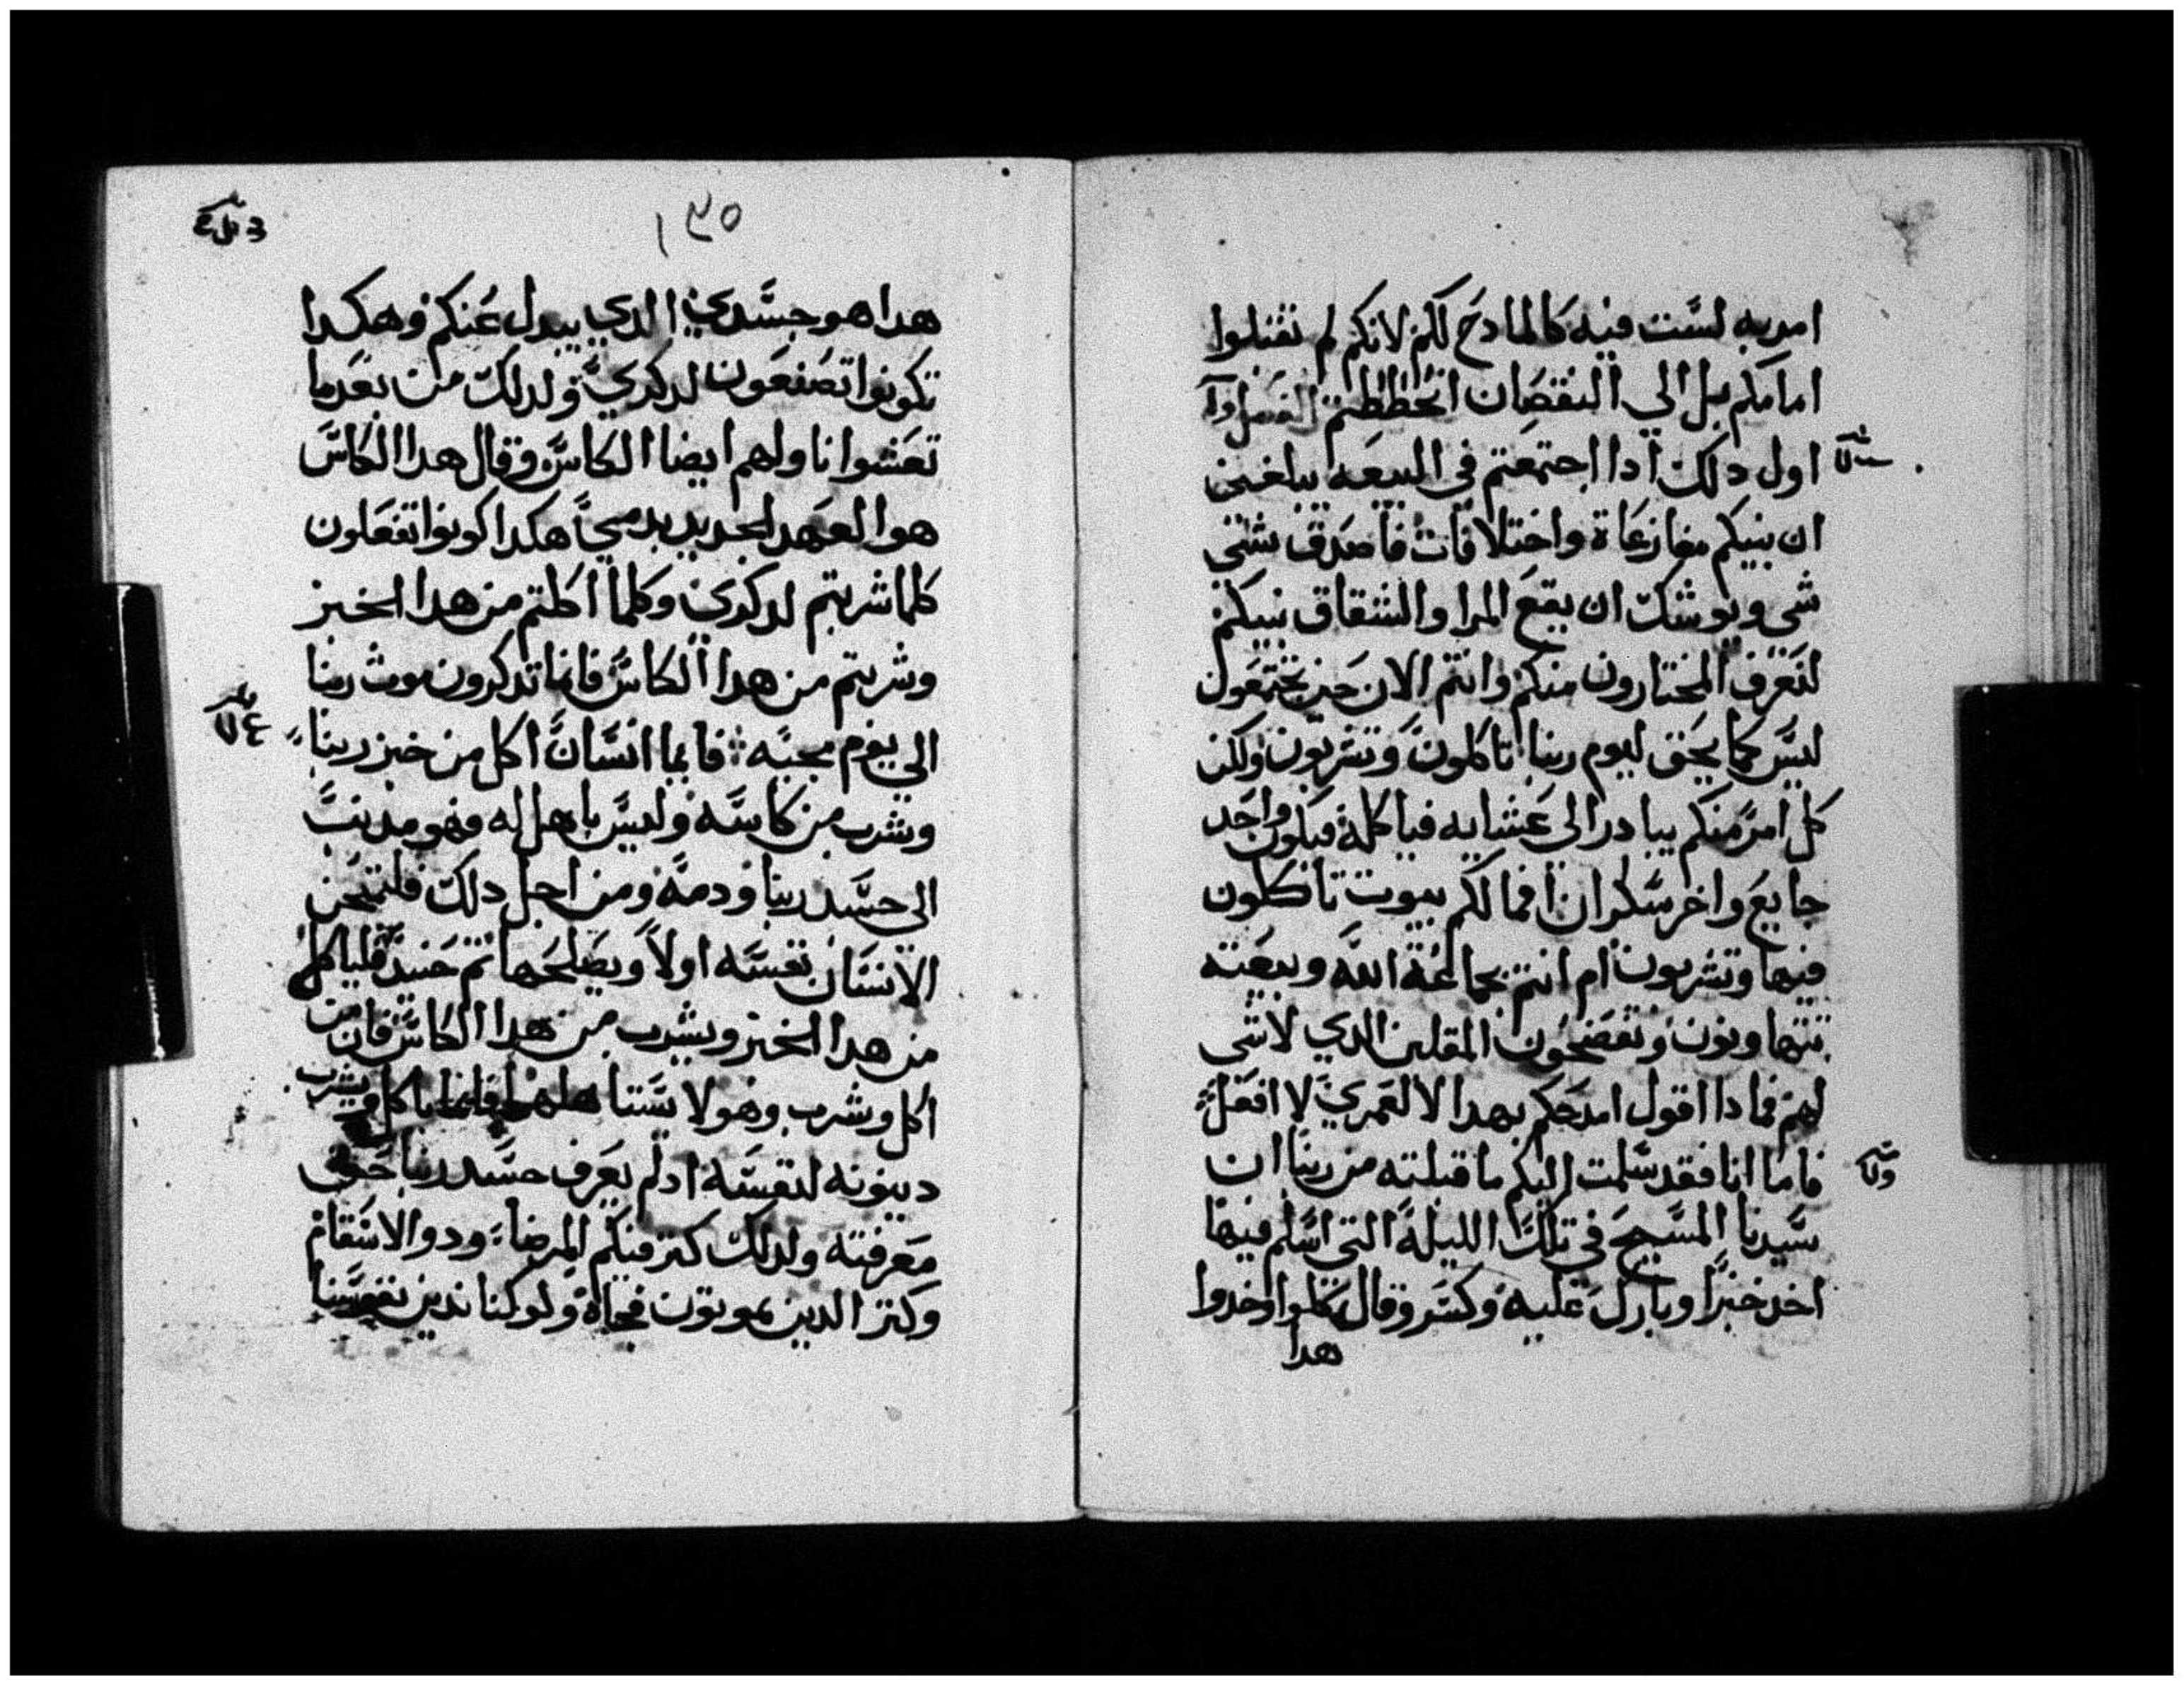 امر به لست فيه كالمادح لكم لانكم لم تقبلوا
امامكم بل الي النقصان انحططتم
اول دلك ادا اجتمعتم في البيعه يبلغني
ان بينكم مغازعاة واختلافات فاصدق بشي
شي ويوشك ان يقع المرا والشقاق بينكم
لتعرف المختارون منكم وانتم الان حين تجتمعون
ليس كما يحق ليوم ربنا تاكلون وتشربون ولكن
كل امر منكم يبادر الى عشايه فياكله فيكون واحد
جايع واخر سكران افما لكم بيوت تاكلون
فيها وتشربون ام انتم بجماعة الله وبيعته
تتهاونون وتفضحون المقلين الدي لاشي
لهم فمادا اقول امدحكم بهدا لا لعمري لا افعل
فاما انا فقد سلمت اليكم ما قبلته من ربنا ان
سيدنا المسيح في تلك الليلة التي اسلم فيها
اخد خبزا وبارك عليه وكسر وقال كلوا وخدوا
هدا
١٣٥
هدا هو جسدي الدي يبدل عنكم وهكدا
تكونوا تصنعون لدكري ولدلك من بعد ما
تعشوا ناولهم ايضا الكاس وقال هدا الكاس
هو العهد الجديد بدمي هكدا كونوا تفعلون
كلما شربتم لدكري وكلما اكلتم من هدا الخبز
وشربتم من هدا الكاس فانما تدكرون موت ربنا
الى يوم مجيه فايما انسان اكل من خبز ربنا
وشرب من كاسه وليس باهل له فهو مدنب
الى جسد ربنا ودمه ومن اجل دلك فليمتحن
الانسان نفسه اولا ويصلحها تم حنيد فلياكل
من هدا الخبز ويشرب من هدا الكاس فان من
اكل وشرب وهو لا يستاهلهما فانما ياكل ويشرب
دينونه لنفسه ادلم يعرف جسد ربنا حق
معرفته ولدلك كتر فيكم المرضا ودو الاسقام
وكتر الدين يموتون فجاة ولو كنا ندين نفوسنا